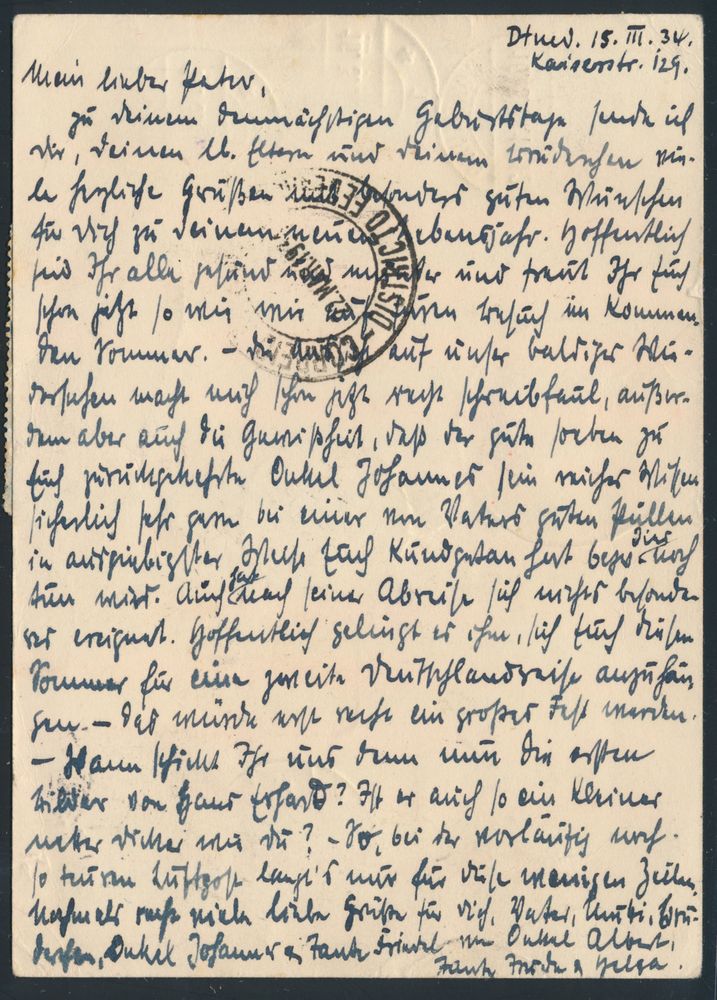 Dtmd. 15. III. 34.
Kaiserstr. 129.
Mein lieber Peter,
zu deinem demnächstigen Geburtstage sende ich
dir, deinen lb. Eltern und deinem Brüderchen vie-
le herzliche Grüßen mit besonders guten Wünschen
für dich zu deinem neuen Lebensjahr. Hoffentlich
seid Ihr alle gesund und munter und freut Ihr Euch
schon jetzt so wie wir auf Euren Besuch im kommen-
den Sommer. – Die auf unser baldiges Wie-
dersehen macht mich schon jetzt recht schreibfaul, außer-
dem aber auch die Gewißheit, daß der gute soeben zu
Euch zurückgekehrte Onkel Johannes sein reiches Wissen
sicherlich sehr gern bei einer von Vaters guten Pullen
in ausgiebigster Weise Euch kundgetan hat bezw. dies noch
tun wird. Auch hat nach seiner Abreise sich nichts besonde-
res ereignet. Hoffentlich gelingt es ihm, sich Euch diesen
Sommer für eine zweite Deutschlandreise anzuhän-
gen. – Das würde erst recht ein großes Fest werden.
– Wann schickt Ihr uns denn nun die ersten
Bilder von Hans Erhard? Ist er auch so ein kleiner
netter dicker wie du? – So, bei der vorläufig noch
so teuren Luftpost langt's nur für diese wenigen Zeilen,
Nochmals recht viele liebe Grüße für dich, Vater, Mutti, Brü-
derchen, Onkel Johannes & Tante Friedel von Onkel Albert,
Tante & Helga.
CORREIO
DISTRICTO FEDERAL
2 MAR 193